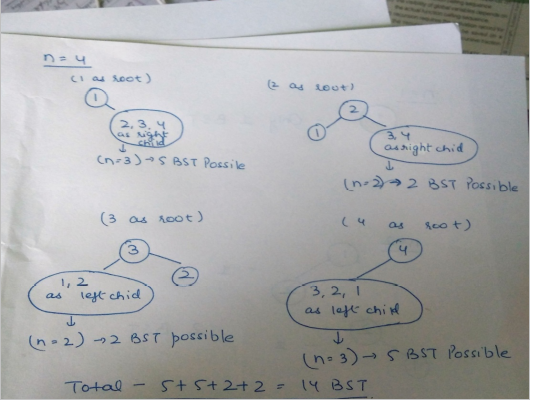 n = 4
(1 as root)
1
2, 3, 4
as right
chid
(n=3) → 5 BST Possile
(2 as root)
2
1
3, 4
as right chid
(n=2) → 2 BST Possible
(3 as root)
3
2
1, 2
as left chid
(n=2) → 2 BST possible
(4 as root)
4
3, 2, 1
as left chid
(n=3) → 5 BST Possible
Total - 5+5+2+2 = 14 BST